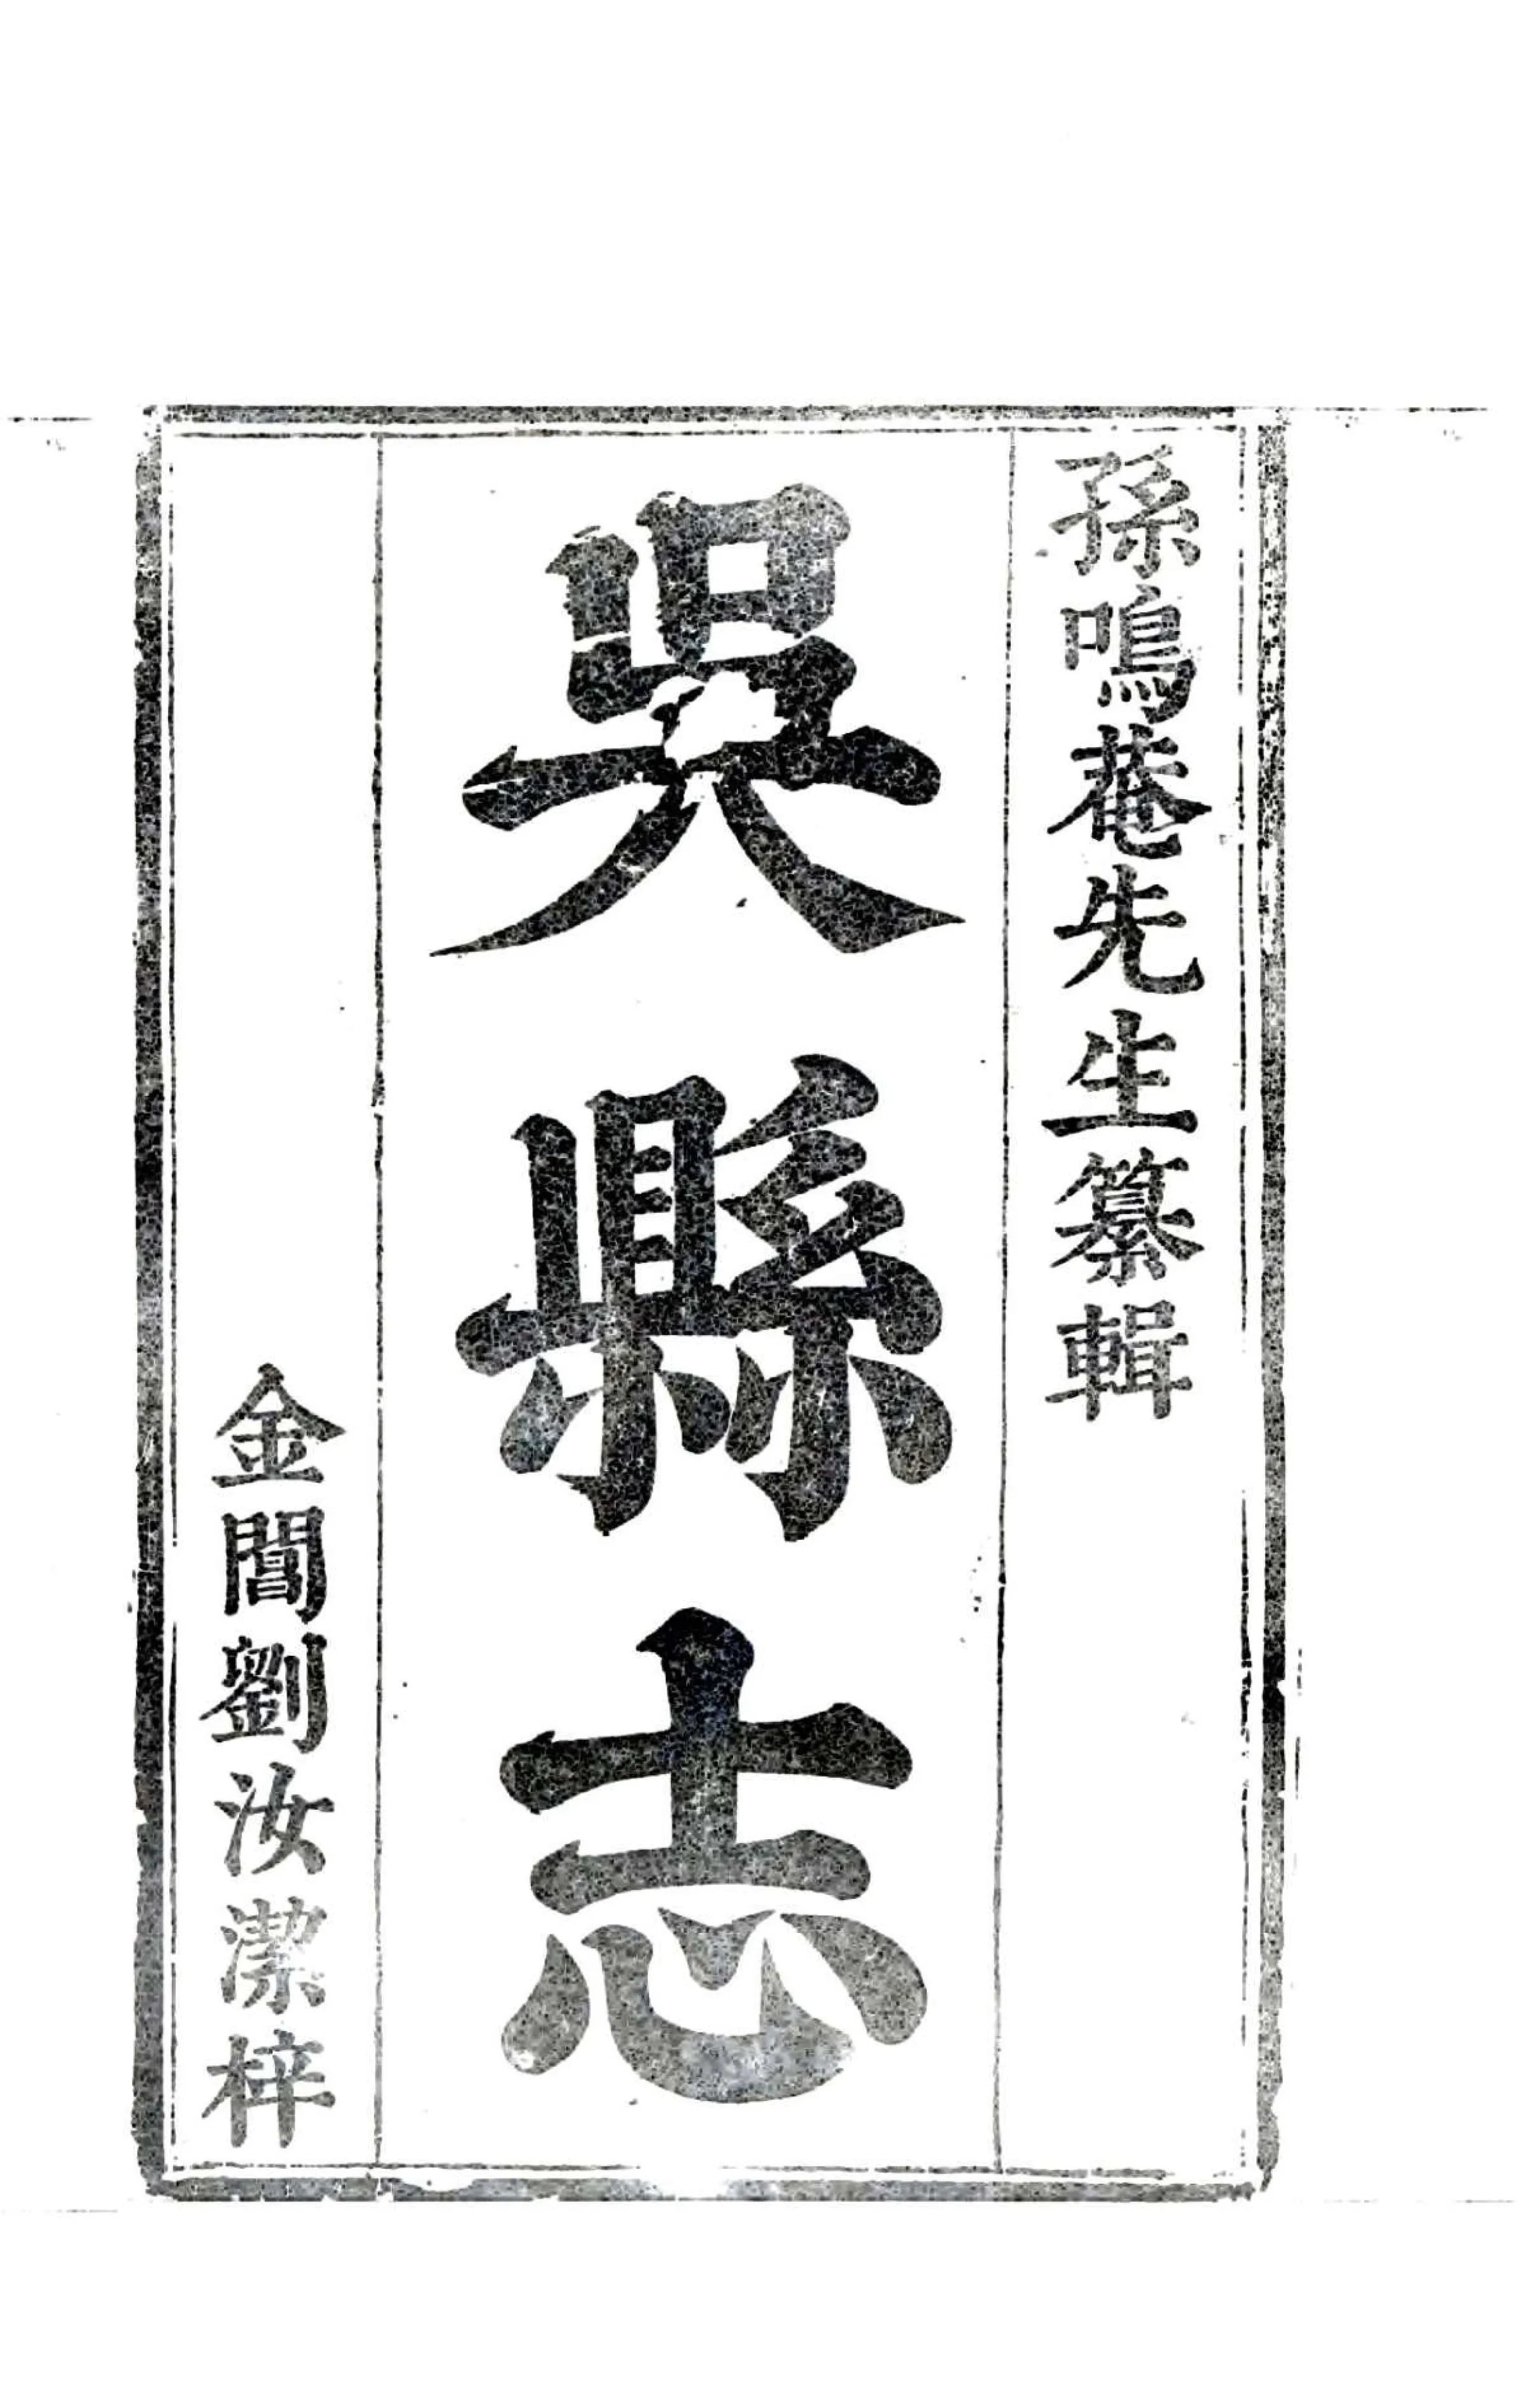 孫鳴菴先生纂輯
吳縣志
金閶劉汝潔梓